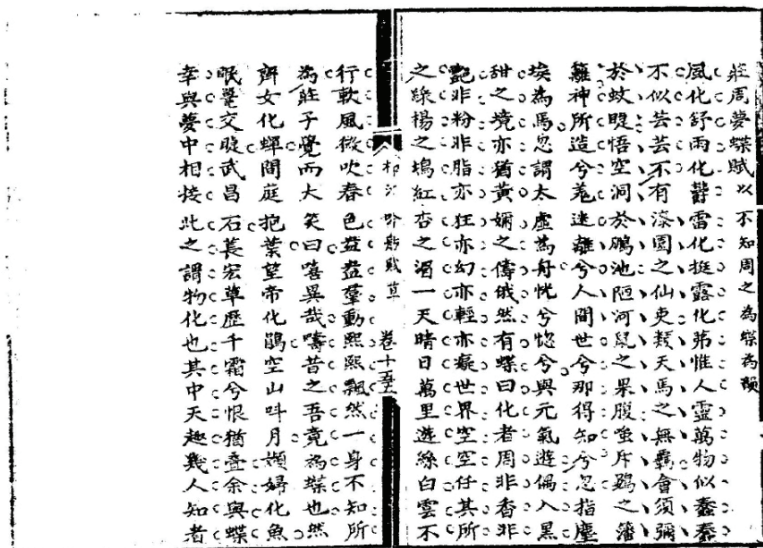 莊周夢蝶賦以不知周之為蝶為韻
風化舒雨化鬱雷化挺露化茀惟人靈萬物似蠢蠢
不似芸芸不有漆園之仙吏類天馬之無羈會須彌
於蚊睫悟空洞於硯池陋河鼠之果腹強斥鷃之藩
籬神所造兮羌迷離兮人間世兮那得知兮忽指塵
埃為馬忽謂太虛為舟恍兮惚兮與元氣遊偏入黑
甜之境亦猶黃嬭之儔俄然有蝶曰化者周非香非
艷非粉非脂亦狂亦幻亦輕亦癡世界空空任其所
之綠楊之塢紅杏之湄一天晴日萬里遊絲白雲不
卷十五
行軟風微吹春色盎盎羣動熙熙飄然一身不知所
為莊子覺而大笑曰嘻異哉疇昔之吾竟為蝶也然
齊女化蟬閒庭抱葉望帝化鵑空山叫月孀婦化魚
眠鱟交睫武昌石萇宏草歷千霜兮恨猶疊余與蝶
幸與夢中相接此之謂物化也其中天趣幾人知者